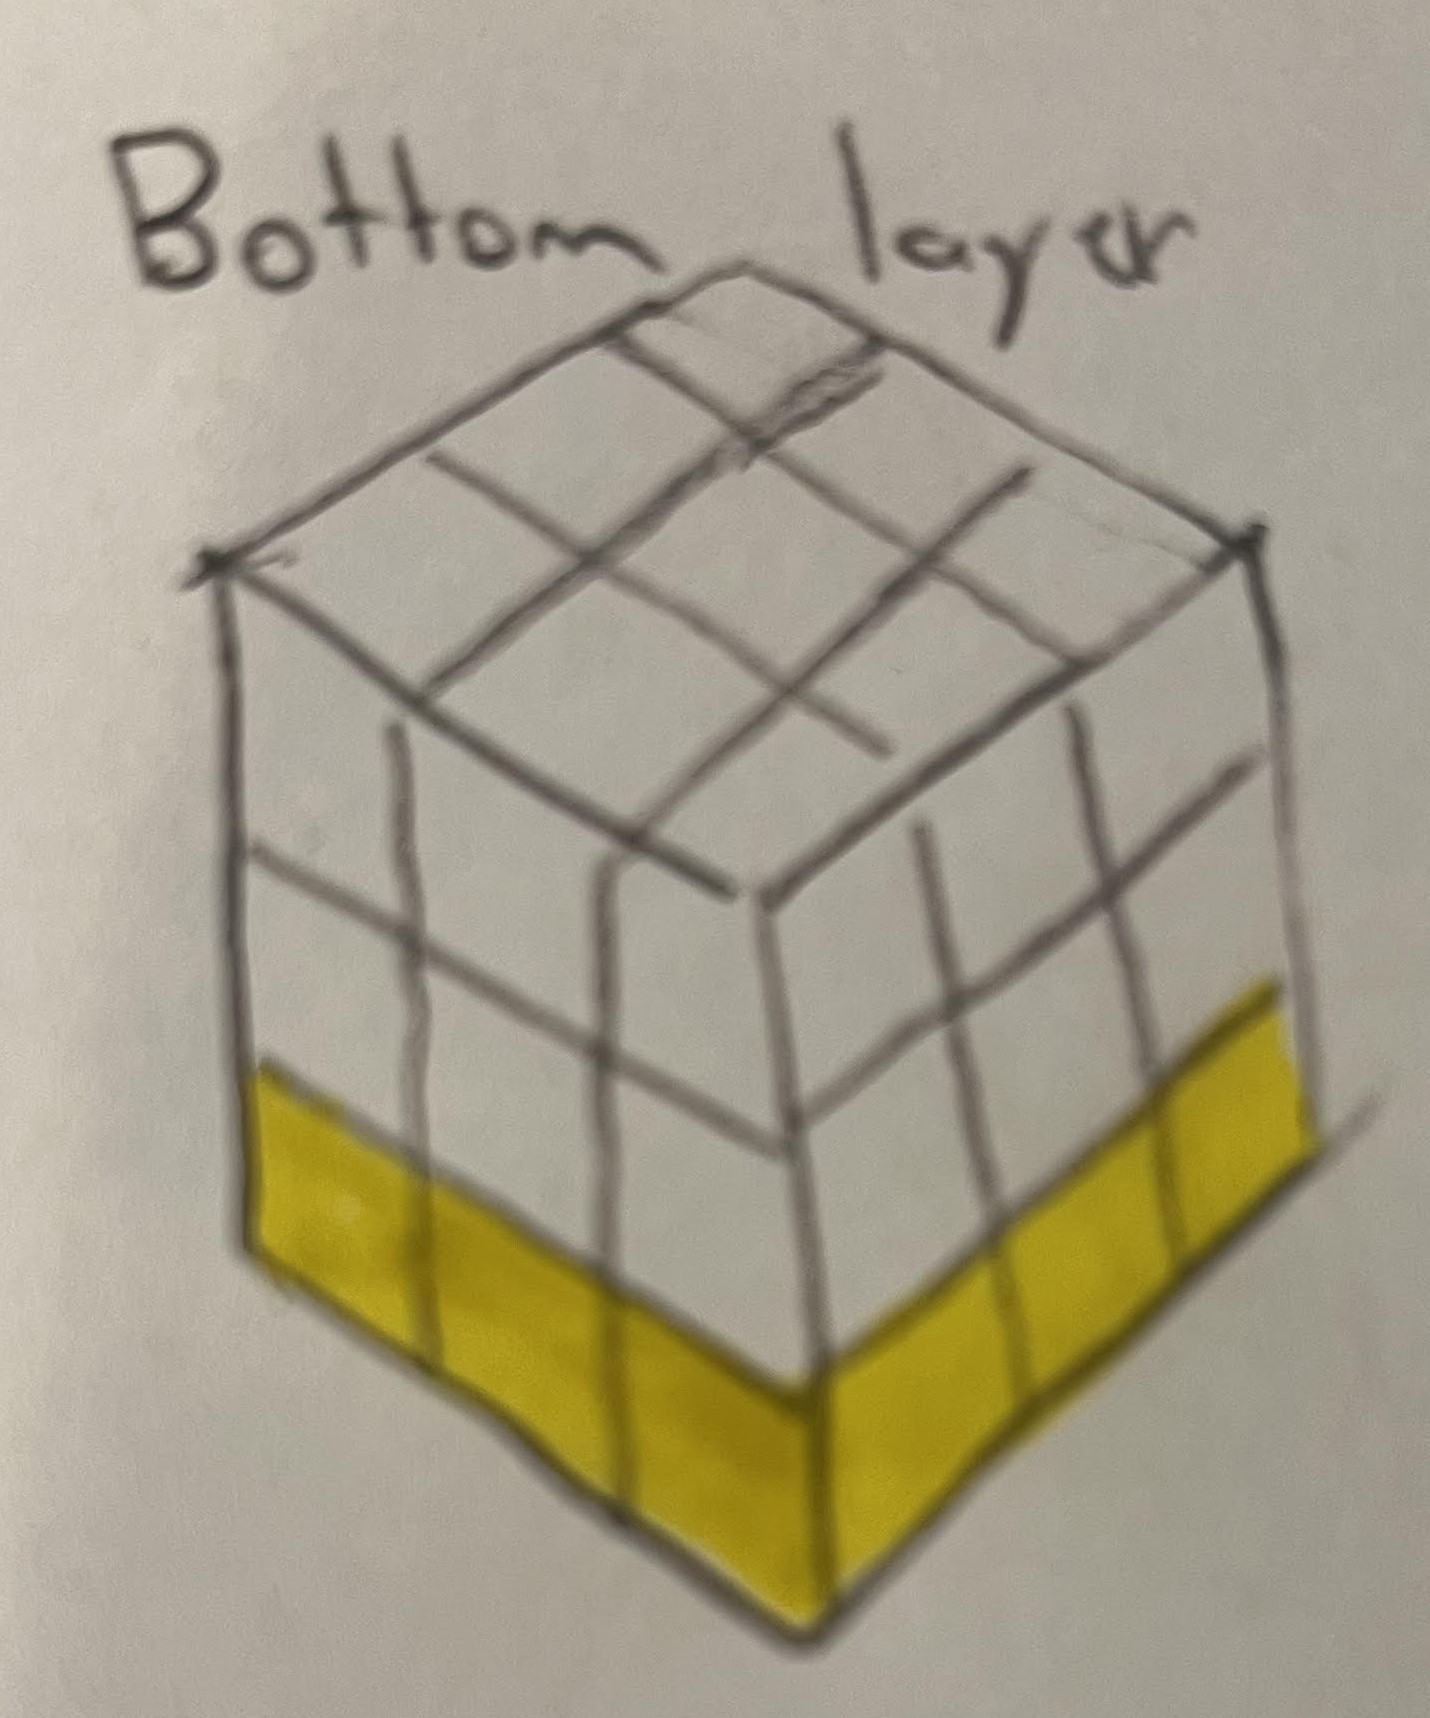 Bottom layer